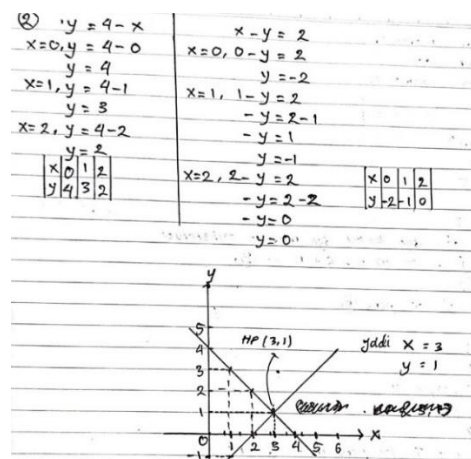 ② y = 4 - x
x=0, y = 4-0
y = 4
x=1, y = 4-1
y = 3
x=2, y = 4-2
y = 2
x 0 1 2
y 4 3 2
x - y = 2
x=0, 0 - y = 2
y = -2
x=1, 1 - y = 2
- y = 2-1
- y = 1
y = -1
x=2, 2 - y = 2
- y = 2-2
- y = 0
y = 0
x 0 1 2
y -2 -1 0
y
5
4
3
2
1
0
-1
1 2 3 4 5 6 x
HP (3,1)
Jadi x = 3
y = 1